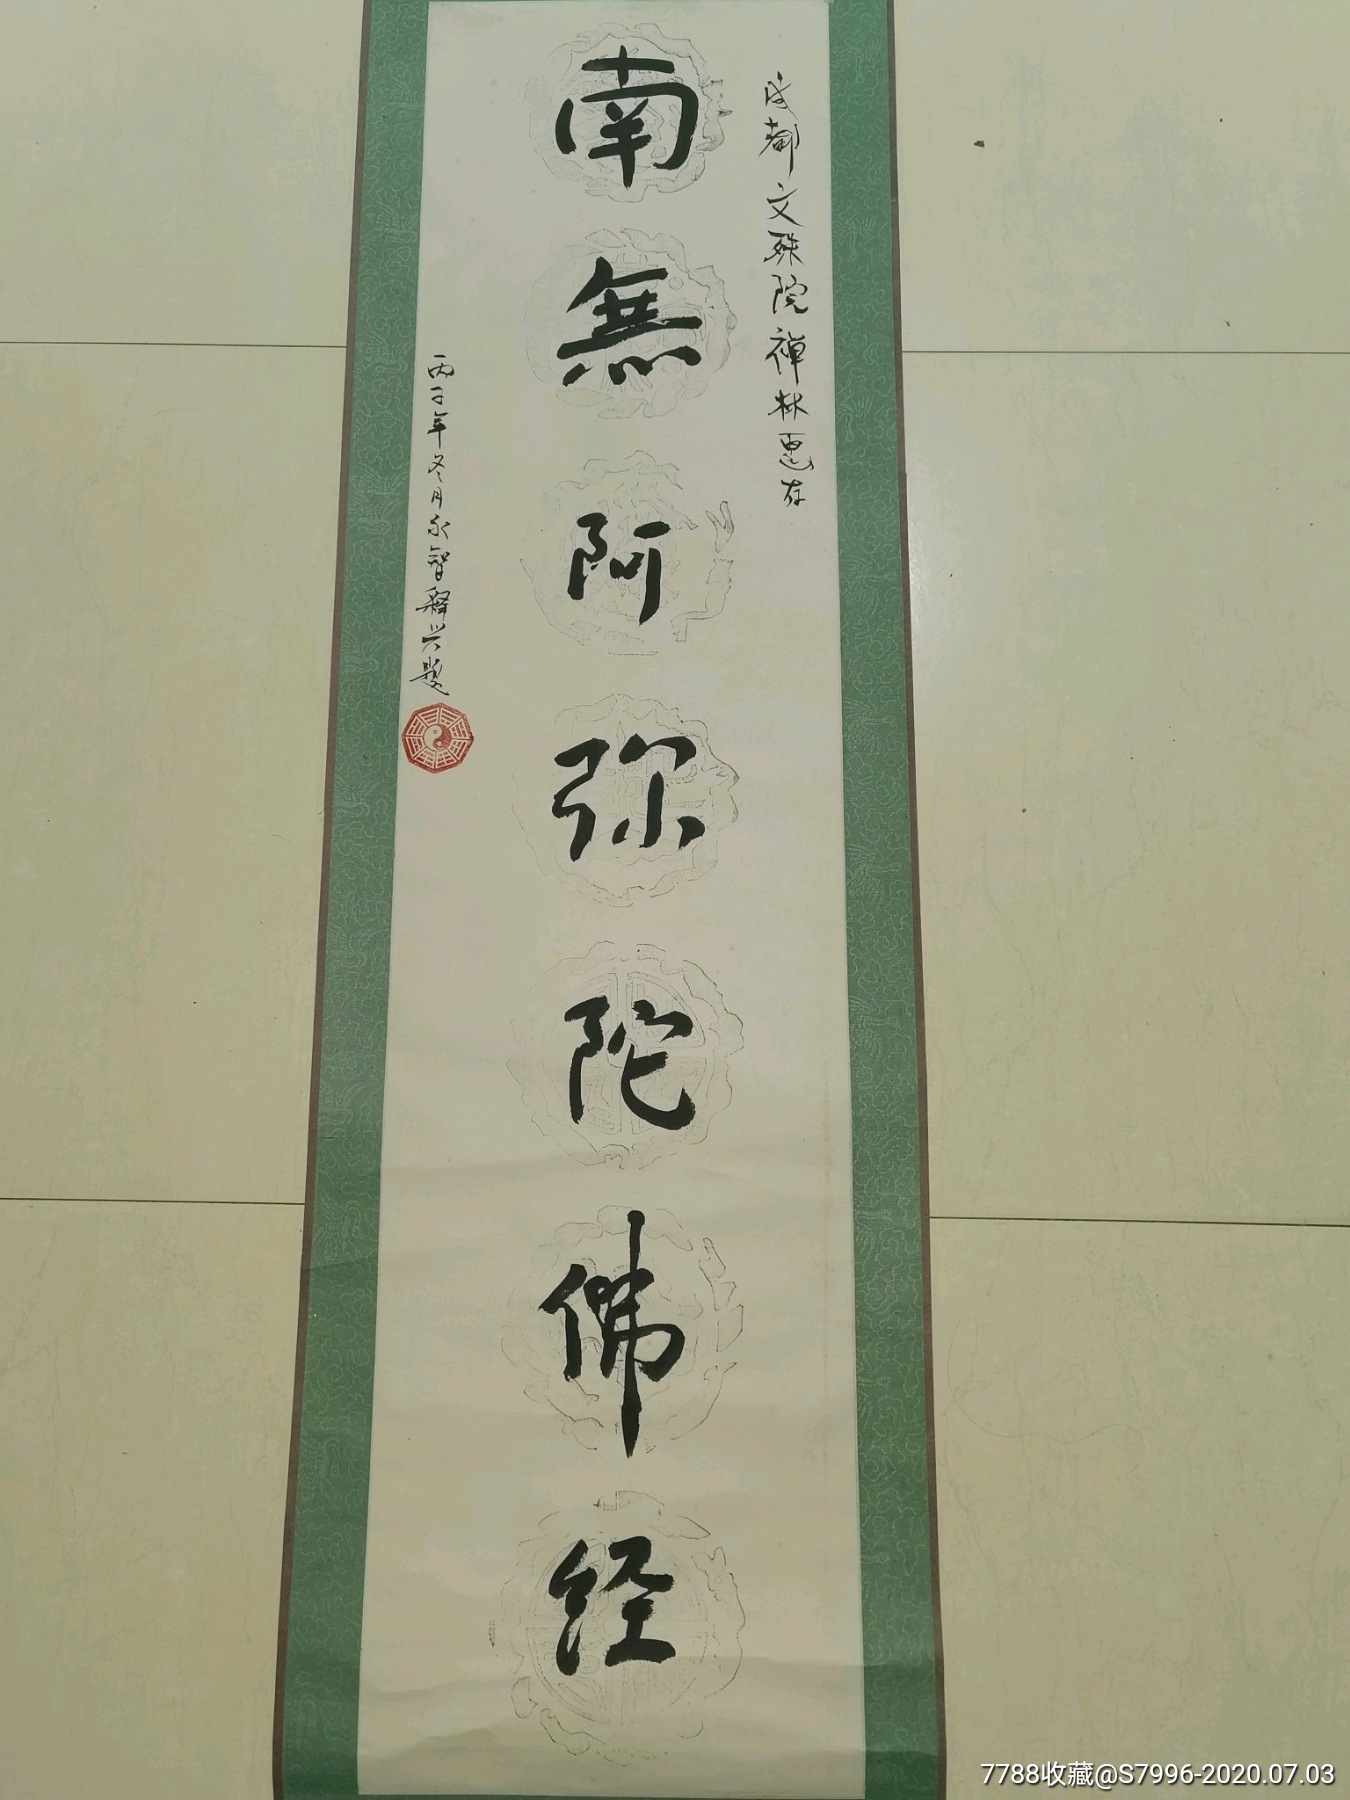 成都文殊院禅林惠存
南無阿弥陀佛经
丙子年冬月永智释兴题
7788收藏@S7996-2020.07.03